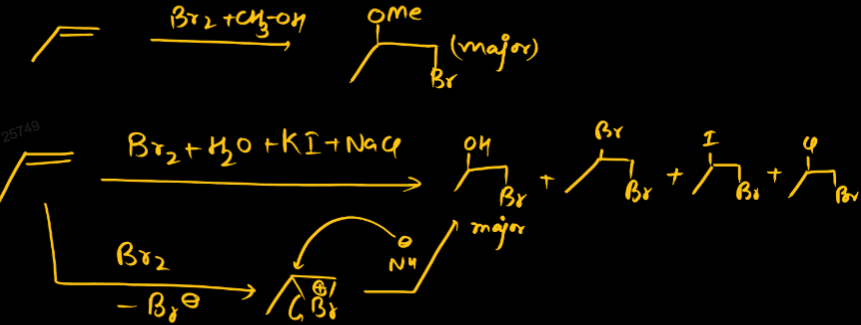 Br2 + CH3-OH
OMe
(major)
Br
25749
Br2 + H2O + KI + NaCl
OH
Br
+
Br
Br
+
I
Br
+
Cl
Br
major
Br2
- Br⊖
⊖
Nu
⊕
Br